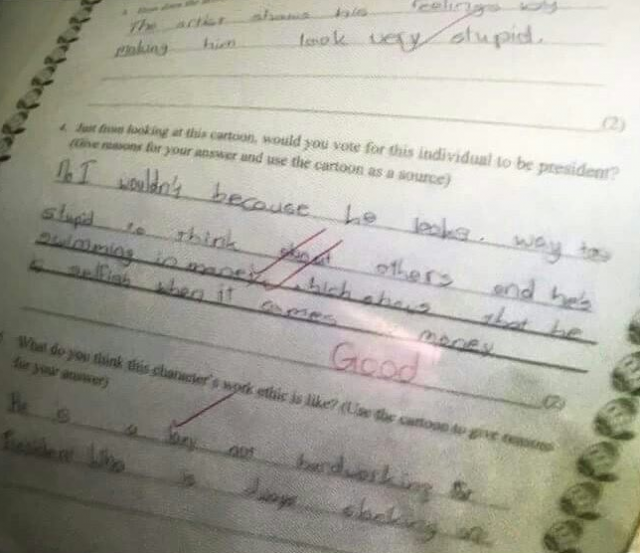 The artist shows his feelings by
making him look very stupid.
(2)
4. Just from looking at this cartoon, would you vote for this individual to be president?
(Give reasons for your answer and use the cartoon as a source)
No I wouldn't because he looks. way too
stupid to think about others and he's
swimming in money which shows that he
is selfish when it comes money
Good
(2)
What do you think this character's work ethic is like? (Use the cartoon to give reasons
for your answer)
He is a lazy not hardworking
President who is always slacking